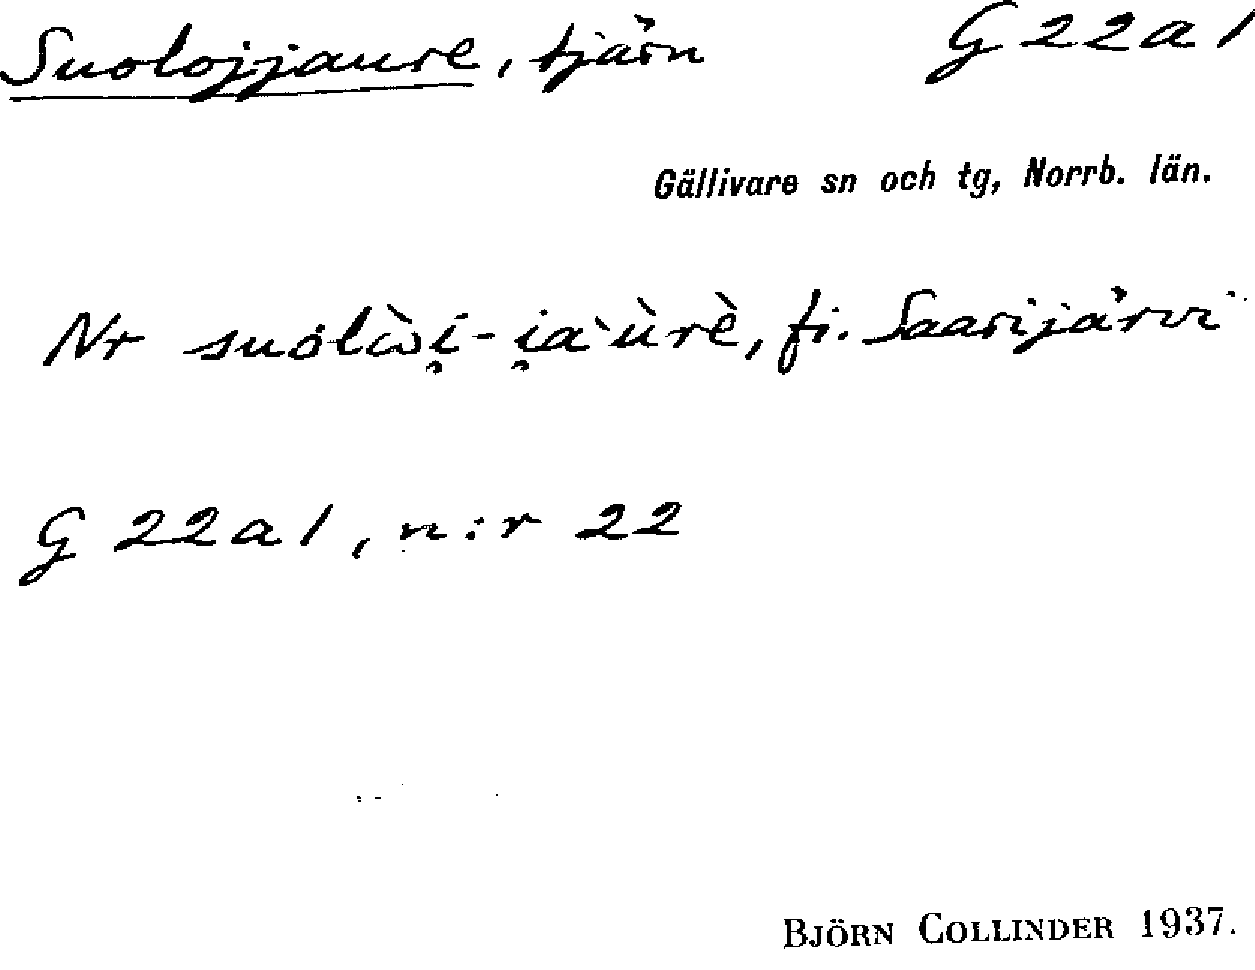 Suolojjaure, tjärn G 22 a 1
Gällivare sn och tg, Norrb. län.
Nr suólὼi̯-i̯a`ùrè, fi. Saarijärvi
G 22 a 1, n:r 22
BJÖRN COLLINDER 1937.